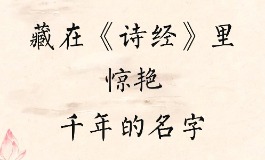 藏在《诗经》里
惊艳
千年的名字